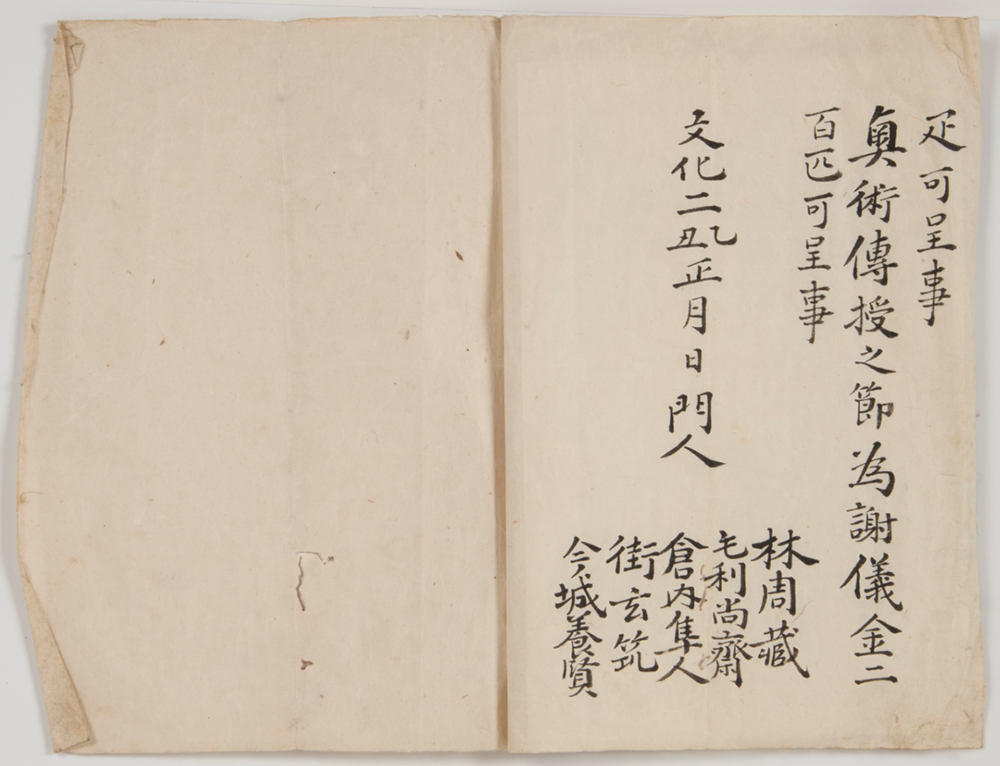 疋可呈事
奥術傳授之節為謝儀金二
百匹可呈事
文化二乙丑正月日門人
林周藏
毛利尚齋
倉内隼人
街玄筑
今城養賢